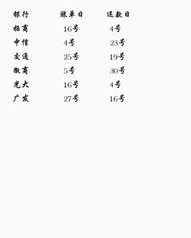 银行 账单日 还款日
招商 16号 4号
中信 4号 23号
交通 25号 19号
徽商 5号 30号
光大 16号 4号
广发 27号 16号